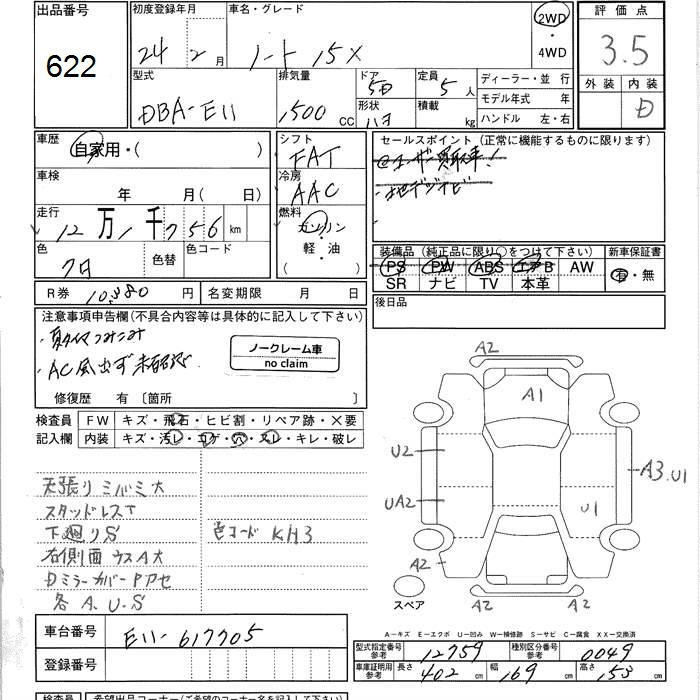 出品番号
622
初度登録年月
24年2月
車名・グレード
ノート 15X
2WD
・
4WD
評価点
3.5
外装 内装
D
型式
DBA-E11
排気量
1500 CC
ドア
5D
形状
ハヨ
定員
5人
積載
kg
ディーラー・並行
モデル年式 年
ハンドル 左・右
車歴
自家用・( )
車検
年 月( 日)
走行
12万1千756km
色
クロ
色替
色コード
R券 10,380円
名変期限 月 日
シフト
FAT
冷房
AAC
燃料
ガソリン
・
軽・油
セールスポイント(正常に機能するものに限ります)
装備品(純正品に限り○をつけて下さい)
PS PW ABS エアB AW
SR ナビ TV 本革
新車保証書
有・無
後日品
注意事項申告欄(不具合内容等は具体的に記入して下さい)
・夏タイヤつみこみ
・AC風出ず未確認
ノークレーム車
no claim
修復歴 有〔箇所 〕
検査員
記入欄
FW キズ・飛石・ヒビ割・リペア跡・X要
内装 キズ・汚レ・コゲ・穴・スレ・キレ・破レ
天張りミバミ大
スタッドレスT
下廻りS
色コード KH3
右側面ウスA大
DミラーカバーPアセ
各A.U.S
A2
A1
U2
UA2
A3.U1
U1
A2
A2
A2
A2
スペア
A-キズ E-エクボ U-凹み W-補修跡 S-サビ C-腐食 XX-交換済
車台番号
E11-617705
登録番号
型式指定番号
参考
12759
種別区分番号
参考
0049
車庫証明用
参考
長さ
402cm
幅
169cm
高さ
153cm
検査員
希望出品コーナー(ご希望のコーナー名を記入して下さい)